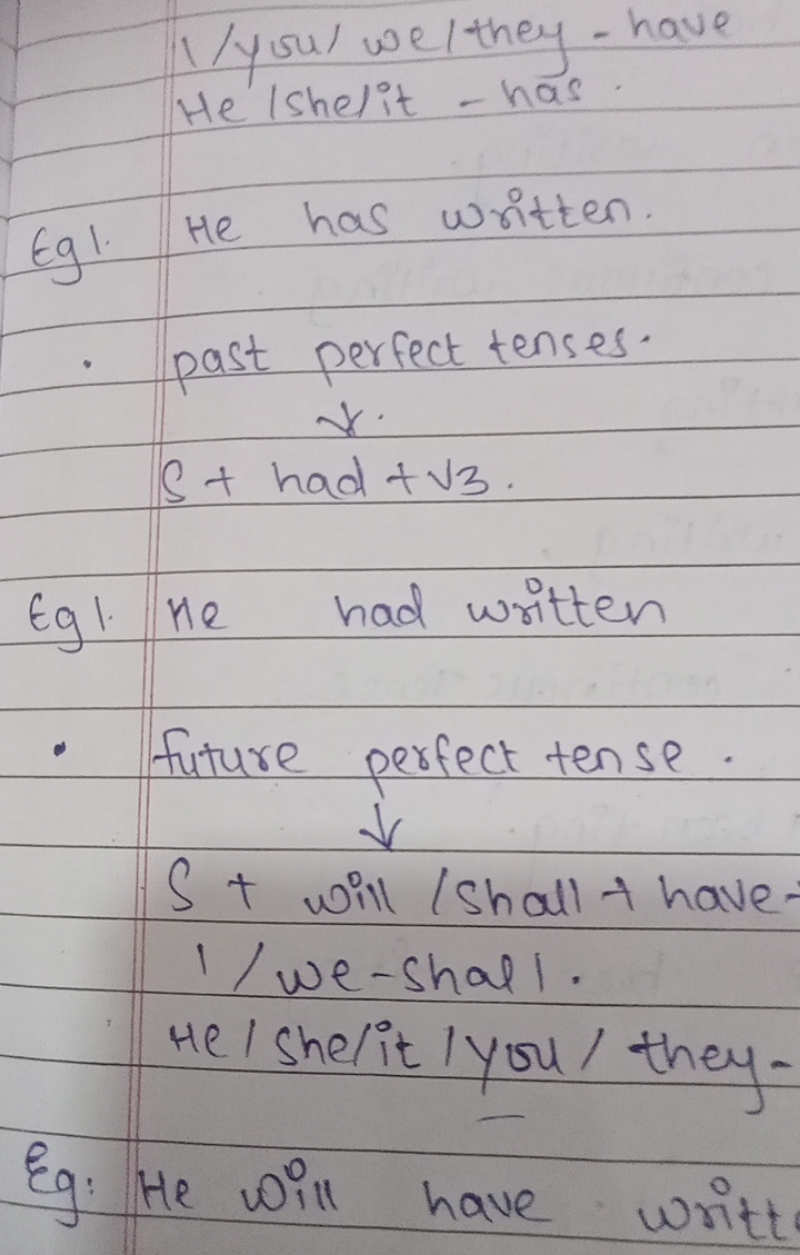 I/you/we/they - have
He/she/it - has.
Eg1. He has written.
• past perfect tenses.
↓.
S + had + V3.
Eg1. He had written
• future perfect tense.
↓
S + will/shall + have +
I/we-shall.
He/she/it/you/they-
Eg: He will have